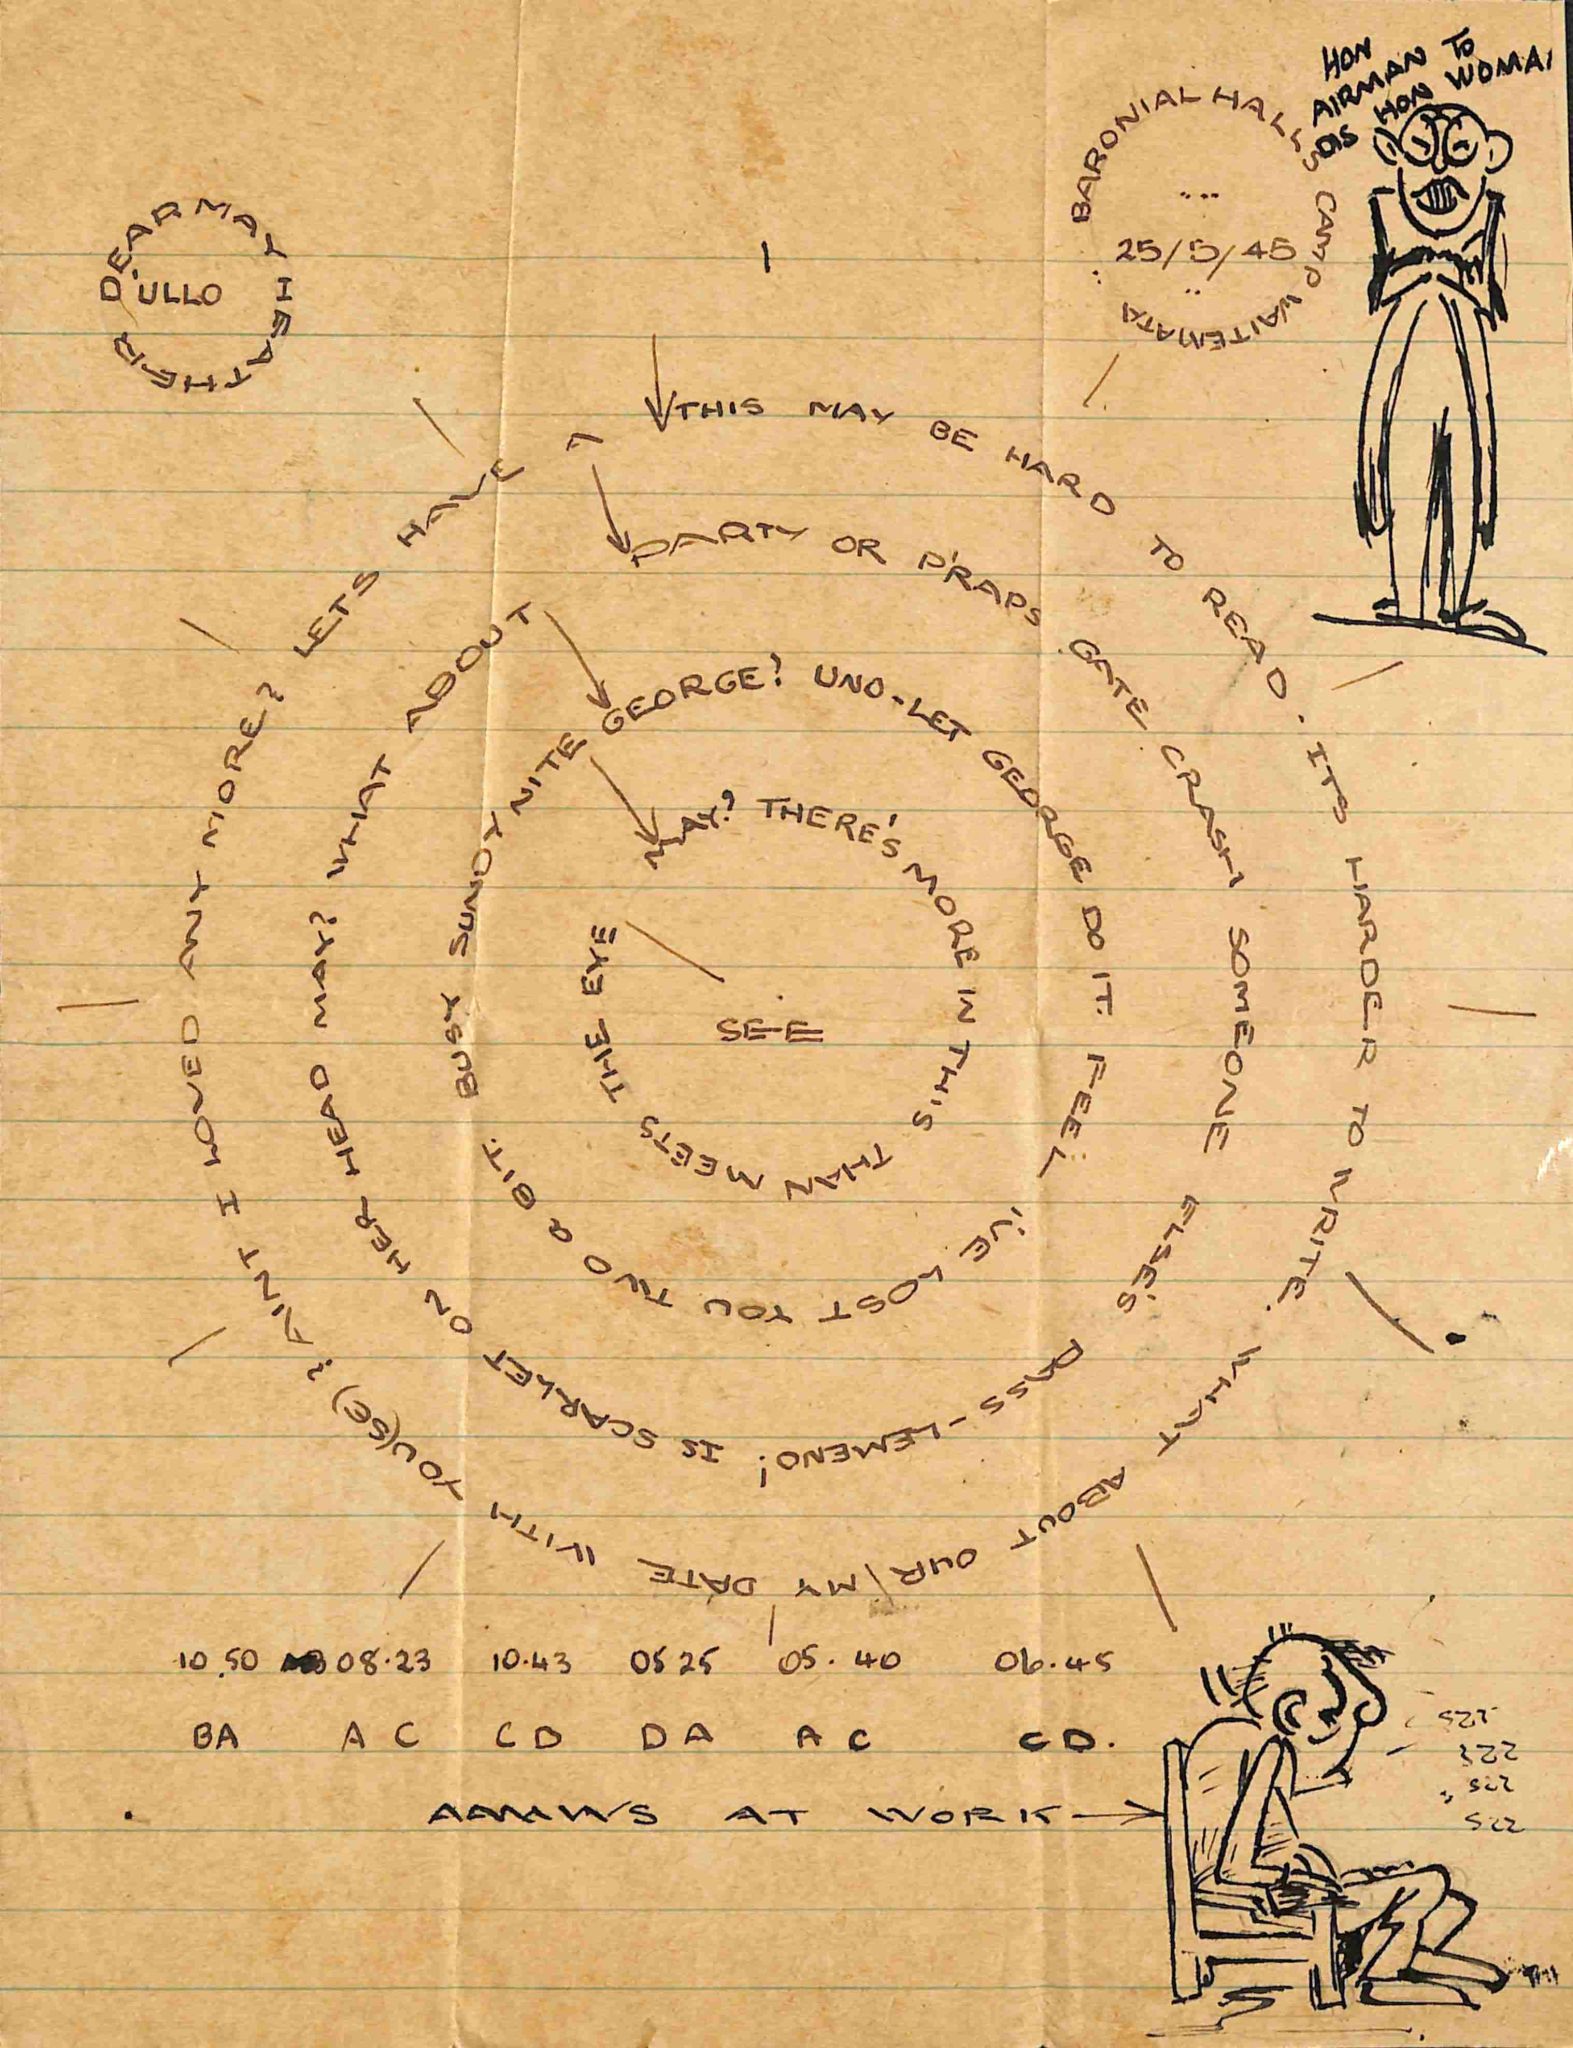 HON
AIRMAN TO
DIS HON WOMA
BARONIAL HALLS CAMP WAITEMATA
25/5/45
DEAR MAY HEATHER
D'ULLO
1
THIS MAY BE HARD TO READ. ITS HARDER TO WRITE. WHAT ABOUT OUR/MY DATE WITH YOU(SE)? AINT I LOVED ANY MORE? LETS HAVE A
PARTY OR P'RAPS GATE CRASH SOMEONE ELSES PASS-LEMENO! IS SCARLET ON HER HEAD MAY? WHAT ABOUT
GEORGE? UNO-LET GEORGE DO IT. FEEL I'VE LOST YOU TWO A BIT. BUSY SUNDY NITE
MAY? THERE'S MORE IN THIS THAN MEETS THE EYE
SEE
10.50 08.23 10.43 05 25 05.40 06.45
BA A C C D D A A C C D.
AAMWS AT WORK
ZZS
ZZZ
ZZS
ZZS